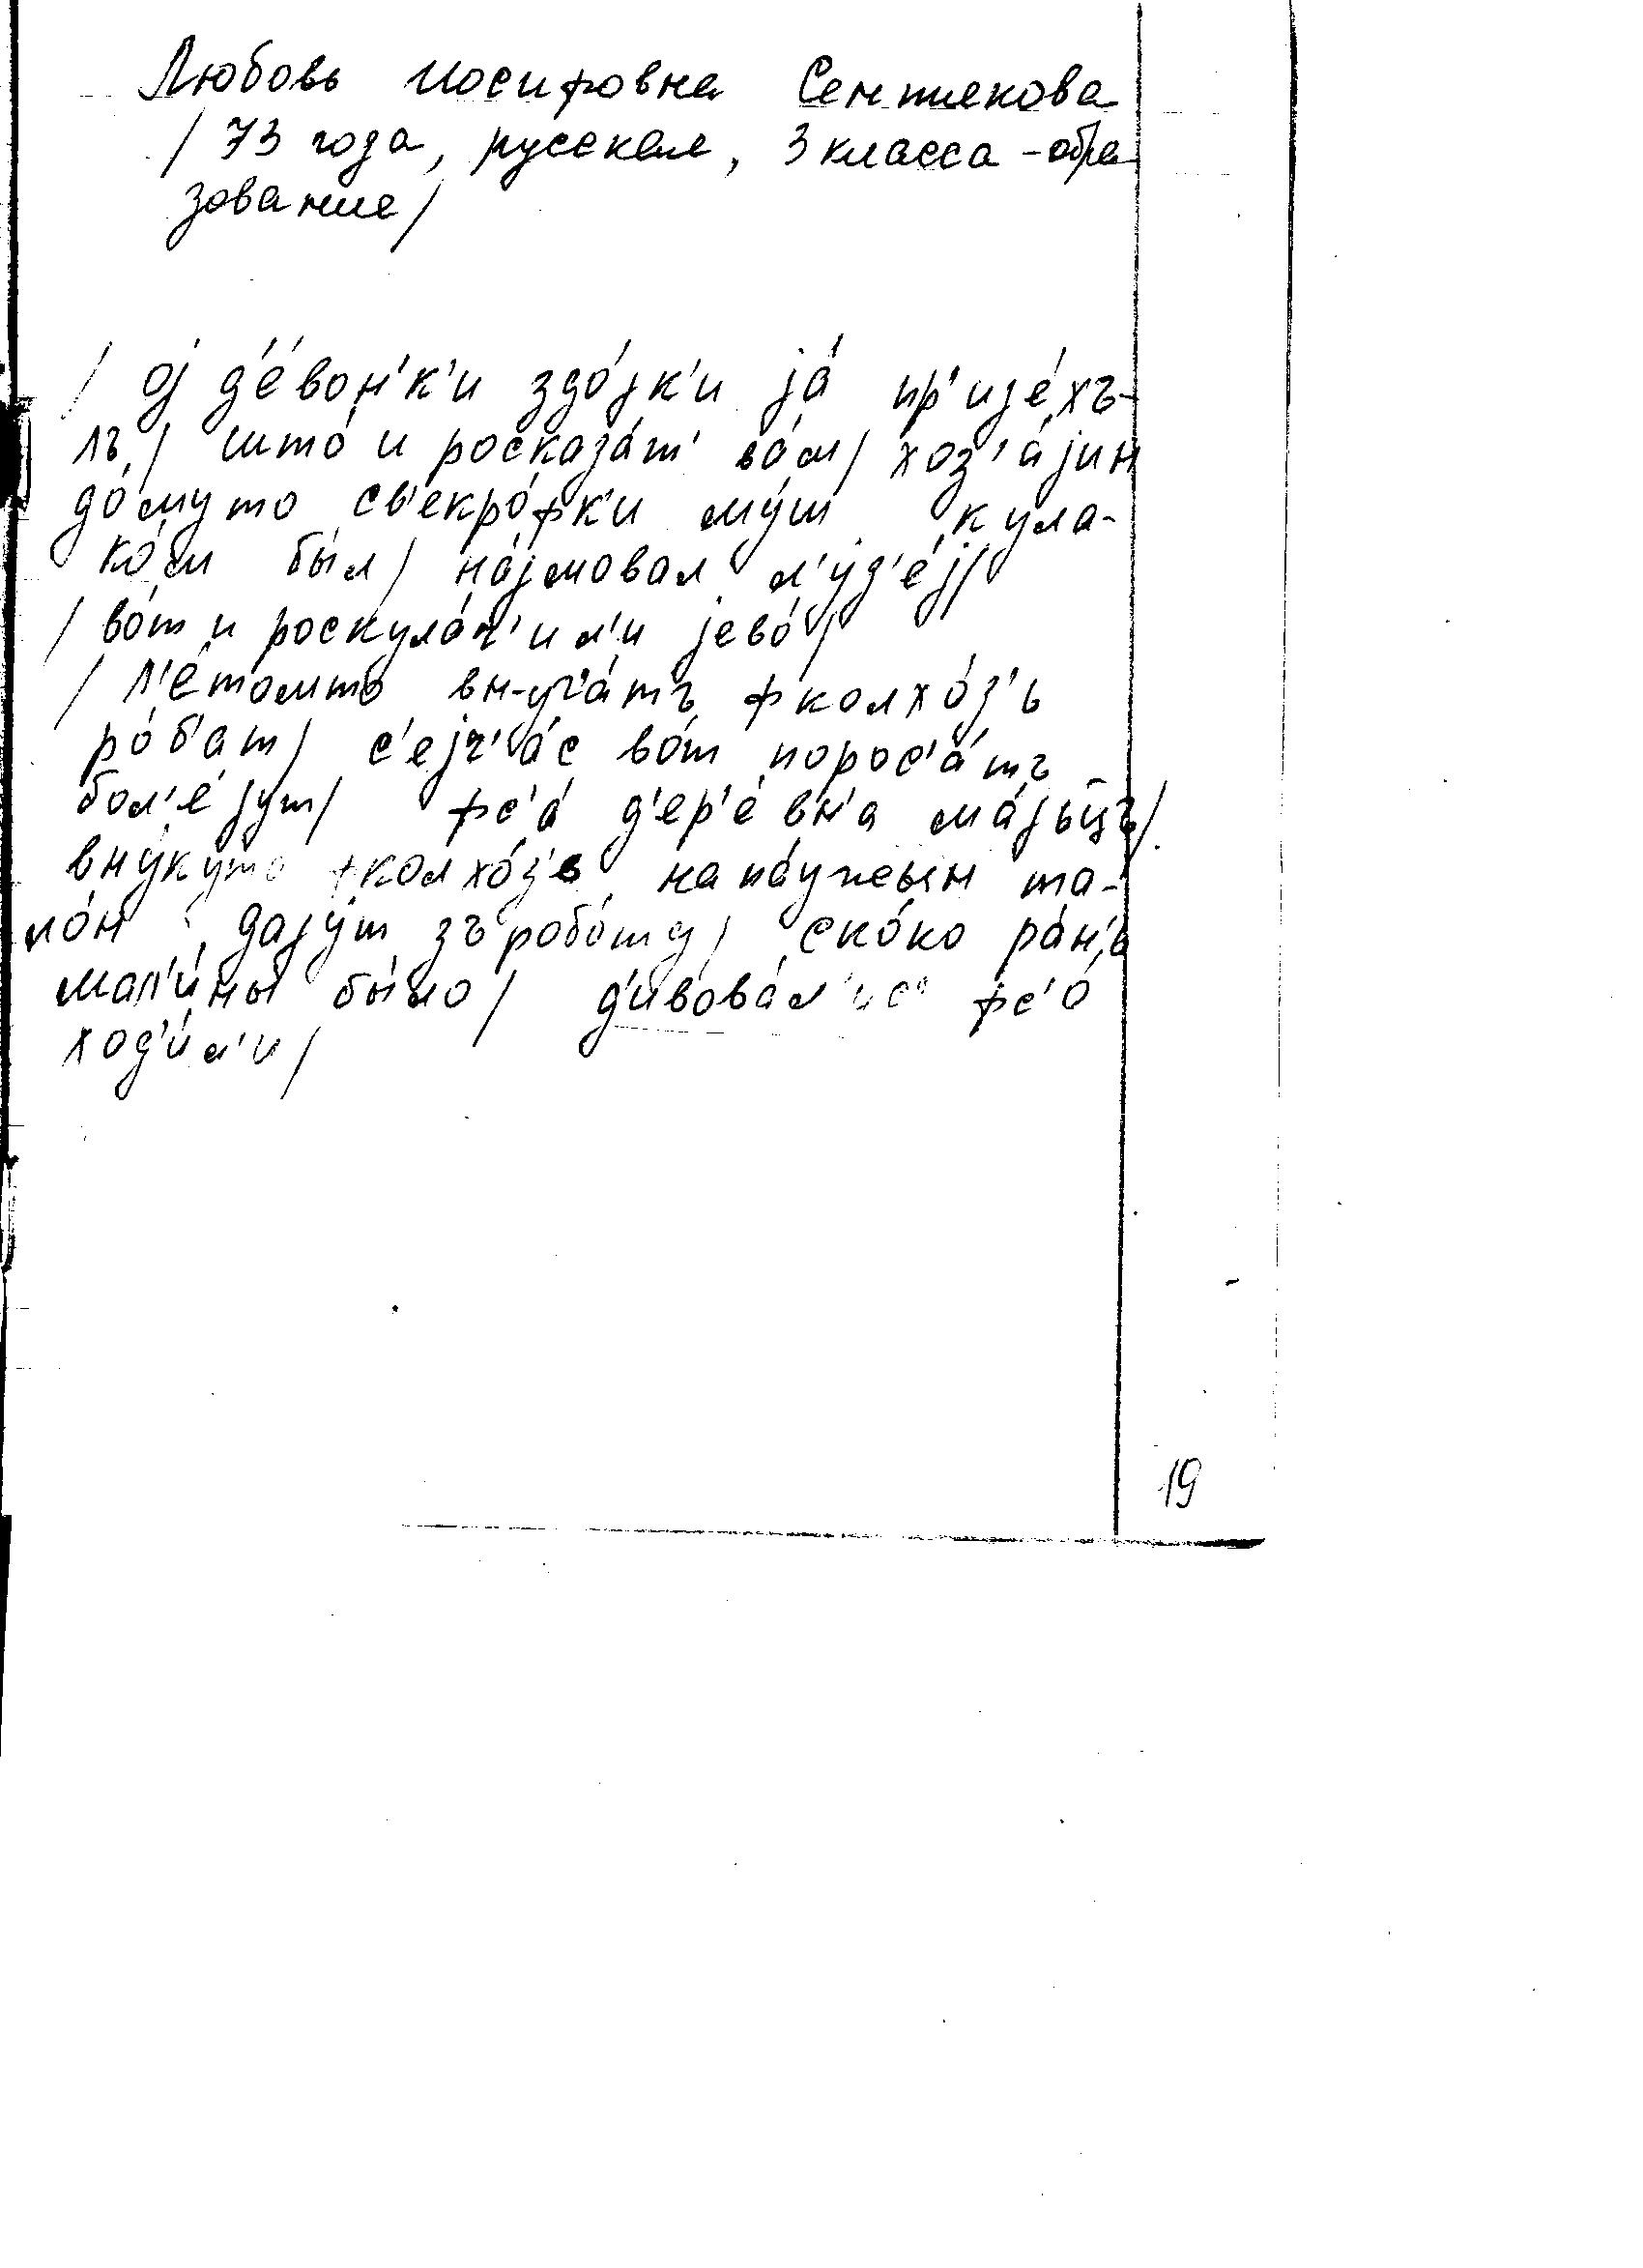 Любовь Иосифовна Сентякова
/ 73 года, русская, 3 класса - обра
зование /
/ оj д'е́вон'к'и здо́jк'и jа́ пр'иjе́хъ-
лъ / што́ и росказа́т' ва́м / хоз'а́jин
до́муто св'екро́фк'и му́ш кула-
ко́м бы́л / на́jмовал л'уд'е́j /
/ во́т и роскула́ч'ил'и jево́ /
/ л'е́томто вн-уч'а́тъ фколхо́з'ь
ро́б'ат / с'еjч'а́с во́т порос'а́тъ
бол'е́jут / фс'а́ д'ер'е́вн'а ма́jьцъ /
вну́куто фколхо́з'ь напа́ужеын та-
ло́н даjу́т зъробо́ту / ско́ко ра́н'ь
мал'и́ны бы́ло / д'ивова́л'ис' фс'о́
ход'и́л'и /
19